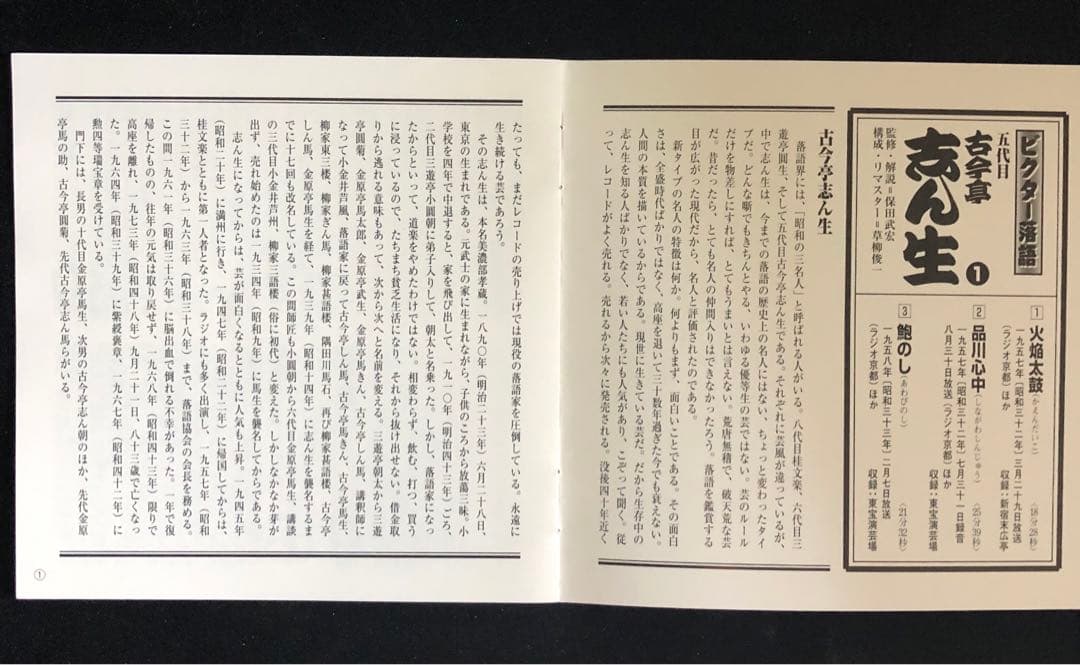 ビクター落語
五代目
古今亭
志ん生
1
監修・解説=保田武宏
構成・リマスター=草柳俊一
1 火焔太鼓(かえんだいこ) 〈18分28秒〉
一九五七年(昭和三十二年)三月二十九日放送
(ラジオ京都)ほか 収録:新宿末広亭
2 品川心中(しながわしんじゅう) 〈25分39秒〉
一九五七年(昭和三十二年)七月三十一日録音
八月三十日放送(ラジオ京都)ほか 収録:東宝演芸場
3 鮑のし(あわびのし) 〈21分32秒〉
一九五八年(昭和三十三年)二月七日放送
(ラジオ京都)ほか 収録:東宝演芸場
古今亭志ん生
落語界には、「昭和の三名人」と呼ばれる人がいる。八代目桂文楽、六代目三
遊亭圓生、そして五代目古今亭志ん生である。それぞれに芸風が違っているが、
中で志ん生は、今までの落語の歴史上の名人にはない、ちょっと変わったタイ
プだ。どんな噺でもきちんとやる、いわゆる優等生の芸ではない。芸のルール
だけを物差しにすれば、とてもうまいとは言えない。荒唐無稽で、破天荒な芸
だ。昔だったら、とても名人の仲間入りはできなかったろう。落語を鑑賞する
目が広がった現代だから、名人と評価されたのである。
新タイプの名人の特徴は何か。何よりもまず、面白いことである。その面白
さは、全盛時代ばかりではなく、高座を退いて三十数年過ぎた今でも衰えない。
人間の本質を描いているからである。現世に生き続ける芸だ。だから生存中の
志ん生を知る人ばかりでなく、若い人たちにも人気があり、こぞって聞く。従
って、レコードがよく売れる。売れるから次々に発売される。没後四十年近く
たっても、まだレコードの売り上げでは現役の落語家を圧倒している。永遠に
生き続ける芸であろう。
その志ん生は、本名美濃部孝蔵。一八九〇年(明治二十三年)六月二十八日、
東京の生まれである。元武士の家に生まれながら、子供のころから放蕩三昧。小
学校を四年で中退すると、家を飛び出して、一九一〇年(明治四十三年)ごろ、
二代目三遊亭小圓朝に弟子入りして、朝太と名乗った。しかし、落語家になっ
たからといって、道楽をやめたわけではない。相変わらず、飲む、打つ、買う
に浸っているので、たちまち貧乏生活になり、それから抜け出せない。借金取
りから逃れる意味もあって、次から次へと名前を変える。三遊亭朝太から三遊
亭圓菊、金原亭馬太郎、金原亭武生、金原亭馬きん、古今亭志ん馬、講釈師に
なって小金井芦風、落語家に戻って古今亭しん馬、古今亭馬きん、古今亭馬生、
柳家東三楼、柳家ぎん馬、柳家甚語楼、隅田川馬石、再び柳家甚語楼、古今亭
しん馬、金原亭馬生を経て、一九三九年(昭和十四年)に志ん生を襲名するま
でに十七回も改名している。この間師匠も小圓朝から六代目金原亭馬生、講談
の三代目小金井芦州、柳家三語楼(俗に初代)と変えた。しかしなかなか芽が
出ず、売れ始めたのは一九三四年(昭和九年)に馬生を襲名してからである。
志ん生になってからは、芸が面白くなるとともに人気も上昇。一九四五年
(昭和二十年)に満州に行き、一九四七年(昭和二十二年)に帰国してからは、
桂文楽とともに第一人者となった。ラジオにも多く出演し、一九五七年(昭和
三十二年)から一九六三年(昭和三十八年)まで、落語協会の会長を務める。
この間一九六一年(昭和三十六年)に脳出血で倒れる不幸があった。一年で復
帰したものの、往年の元気は取り戻せず、一九六八年(昭和四十三年)限りで
高座を離れ、一九七三年(昭和四十八年)九月二十一日、八十三歳で亡くなっ
た。一九六四年(昭和三十九年)に紫綬褒章、一九六七年(昭和四十二年)に
勲四等瑞宝章を受けている。
門下には、長男の十代目金原亭馬生、次男の古今亭志ん朝のほか、先代金原
亭馬の助、古今亭圓菊、先代古今亭志ん馬らがいる。
①